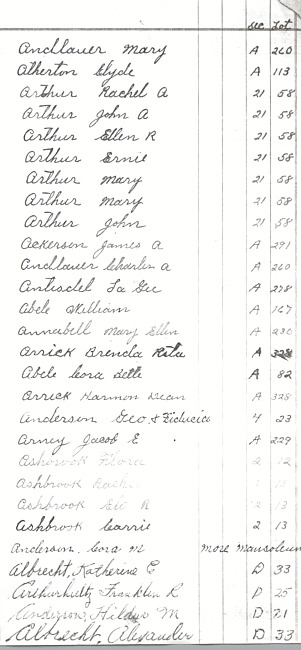 Sec Lot
Andllauer Mary A 260
Atherton Clyde A 113
Arthur Rachel A 21 58
Arthur John A 21 58
Arthur Ellen R 21 58
Arthur Ernie 21 58
Arthur Mary 21 58
Arthur Mary 21 58
Arthur John 21 58
Ackerson James A A 291
Andllauer Charlie A A 260
Antisdel La Gee A 278
Abele William A 167
Annabell Mary Ellen A 230
Arrick Brenda Rita A 328
Abele Cora Belle A 82
Arrick Harmon Dean A 328
Anderson Geo & 4 23
Arney Jacob E A 229
Ashbrook Flora 2 12
Ashbrook 2 13
Ashbrook R 2 13
Ashbrook Carrie 2 13
Anderson, Cora M more mausoleum
Albrecht, Katherine C D 33
Franklin R D 25
Anderson, Hildur M D 21
Albrecht, Alexander D 33